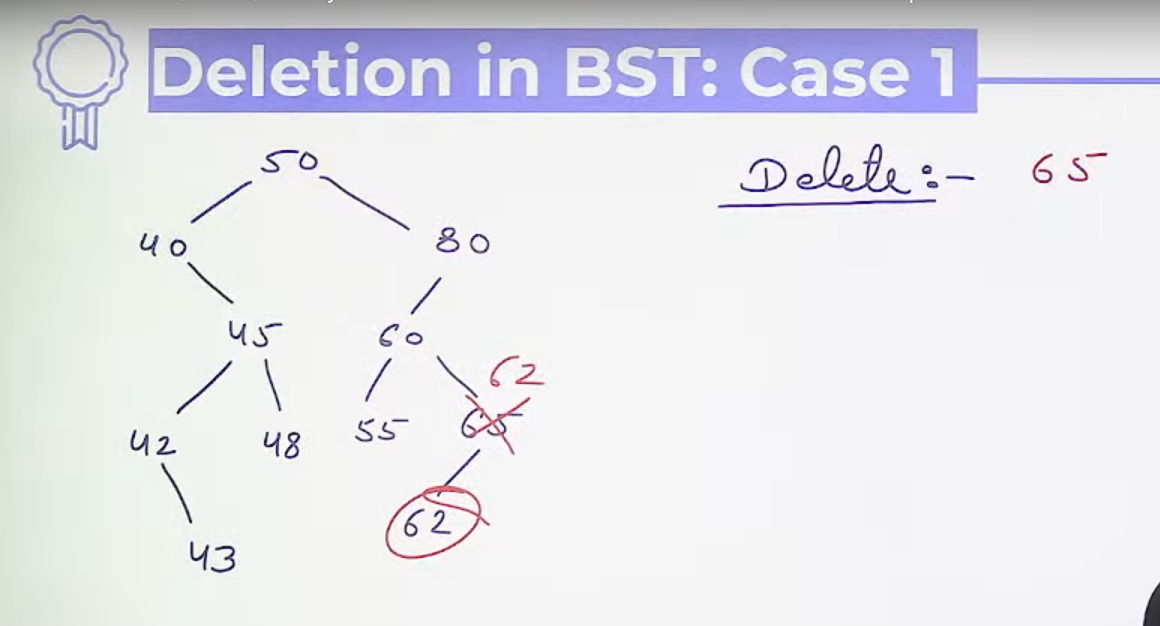 Deletion in BST: Case 1
Delete:- 65
50
40 80
45 60
62
42 48 55 65
62
43